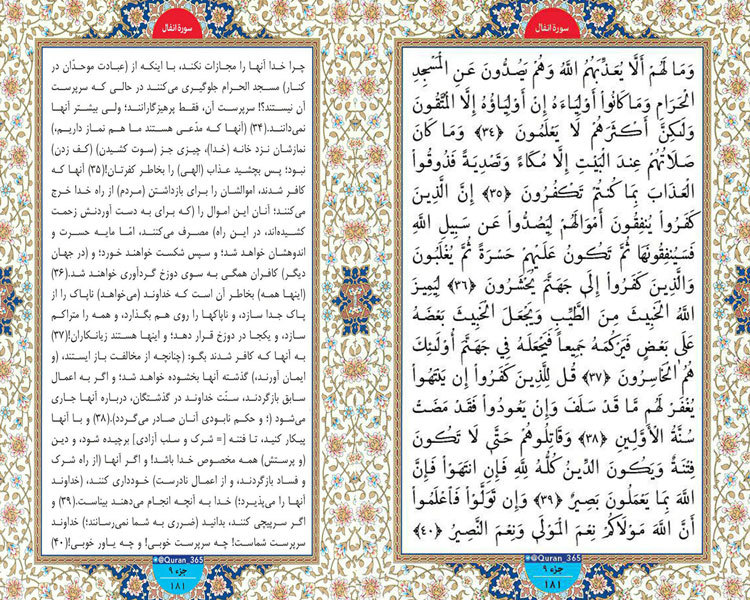 سورهٔ انفال
وَمَا لَهُمْ أَلَّا يُعَذِّبَهُمُ اللَّهُ وَهُمْ يَصُدُّونَ عَنِ الْمَسْجِدِ
الْحَرَامِ وَمَا كَانُواْ أَوْلِيَاءَهُ إِنْ أَوْلِيَاؤُهُ إِلَّا الْمُتَّقُونَ
وَلَكِنَّ أَكْثَرَهُمْ لَا يَعْلَمُونَ ﴿۳۴﴾ وَمَا كَانَ
صَلَاتُهُمْ عِندَ الْبَيْتِ إِلَّا مُكَاءً وَتَصْدِيَةً فَذُوقُواْ
الْعَذَابَ بِمَا كُنتُمْ تَكْفُرُونَ ﴿۳۵﴾ إِنَّ الَّذِينَ
كَفَرُواْ يُنفِقُونَ أَمْوَالَهُمْ لِيَصُدُّواْ عَن سَبِيلِ اللَّهِ
فَسَيُنفِقُونَهَا ثُمَّ تَكُونُ عَلَيْهِمْ حَسْرَةً ثُمَّ يُغْلَبُونَ
وَالَّذِينَ كَفَرُواْ إِلَى جَهَنَّمَ يُحْشَرُونَ ﴿۳۶﴾ لِيَمِيزَ
اللَّهُ الْخَبِيثَ مِنَ الطَّيِّبِ وَيَجْعَلَ الْخَبِيثَ بَعْضَهُ
عَلَى بَعْضٍ فَيَرْكُمَهُ جَمِيعاً فَيَجْعَلَهُ فِي جَهَنَّمَ أُوْلَئِكَ
هُمُ الْخَاسِرُونَ ﴿۳۷﴾ قُل لِلَّذِينَ كَفَرُواْ إِن يَنتَهُواْ
يُغْفَرْ لَهُم مَّا قَدْ سَلَفَ وَإِنْ يَعُودُواْ فَقَدْ مَضَتْ
سُنَّةُ الْأَوَّلِينَ ﴿۳۸﴾ وَقَاتِلُوهُمْ حَتَّى لَا تَكُونَ
فِتْنَةٌ وَيَكُونَ الدِّينُ كُلُّهُ لِلَّهِ فَإِنِ انتَهَوْاْ فَإِنَّ
اللَّهَ بِمَا يَعْمَلُونَ بَصِيرٌ ﴿۳۹﴾ وَإِن تَوَلَّوْاْ فَاعْلَمُواْ
أَنَّ اللَّهَ مَوْلَاكُمْ نِعْمَ الْمَوْلَى وَنِعْمَ النَّصِيرُ ﴿۴۰﴾
@Quran_365
جزء ۹
۱۸۱
سورهٔ انفال
چرا خدا آنها را مجازات نکند، با اینکه از (عبادت موحدّان در
کنار) مسجد الحرام جلوگیری می‌کنند در حالی که سرپرست
آن نیستند؟! سرپرست آن، فقط پرهیزگارانند؛ ولی بیشتر آنها
نمی‌دانند.(۳۴) (آنها که مدّعی هستند ما هم نماز داریم،)
نمازشان نزد خانه (خدا)، چیزی جز (سوت کشیدن) (کف زدن)
نبود؛ پس بچشید عذاب (الهی) را بخاطر کفرتان!(۳۵) آنها که
کافر شدند، اموالشان را برای بازداشتن (مردم) از راه خدا خرج
می‌کنند؛ آنان این اموال را (که برای به دست آوردنش زحمت
کشیده‌اند، در این راه) مصرف می‌کنند، امّا مایه حسرت و
اندوهشان خواهد شد؛ و سپس شکست خواهند خورد؛ و (در جهان
دیگر) کافران همگی به سوی دوزخ گردآوری خواهند شد.(۳۶)
(اینها همه) بخاطر آن است که خداوند (می‌خواهد) ناپاک را از
پاک جدا سازد، و ناپاکها را روی هم بگذارد، و همه را متراکم
سازد، و یکجا در دوزخ قرار دهد؛ و اینها هستند زیانکاران!(۳۷)
به آنها که کافر شدند بگو: (چنانچه از مخالفت باز ایستند، (و
ایمان آورند،) گذشته آنها بخشوده خواهد شد؛ و اگر به اعمال
سابق بازگردند، سنّت خداوند در گذشتگان، درباره آنها جاری
می‌شود (؛ و حکم نابودی آنان صادر می‌گردد).(۳۸) و با آنها
پیکار کنید، تا فتنه [= شرک و سلب آزادی] برچیده شود، و دین
(و پرستش) همه مخصوص خدا باشد! و اگر آنها (از راه شرک
و فساد بازگردند، و از اعمال نادرست) خودداری کنند، (خداوند
آنها را می‌پذیرد؛) خدا به آنچه انجام می‌دهند بیناست.(۳۹) و
اگر سرپیچی کنند، بدانید (ضرری به شما نمی‌رسانند؛) خداوند
سرپرست شماست! چه سرپرست خوبی! و چه یاور خوبی!(۴۰)
@Quran_365
جزء ۹
۱۸۱